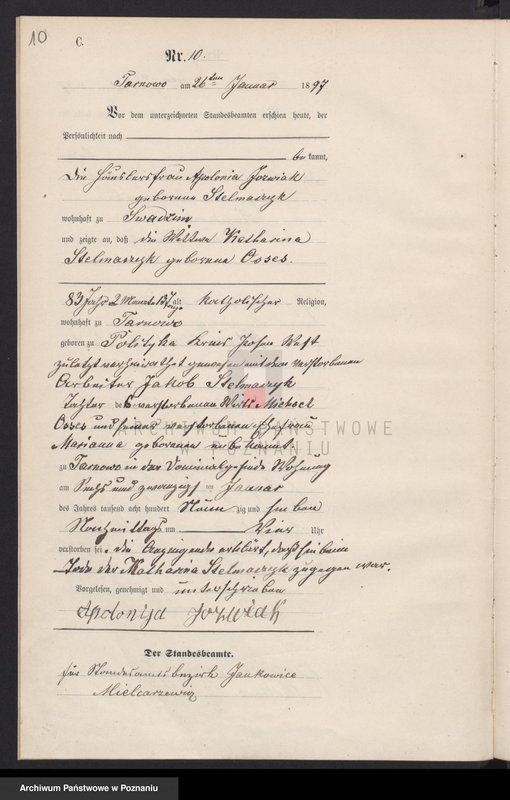 10
C.
Nr. 10.
Tarnowo am 26ten Januar 1897
Vor dem unterzeichneten Standesbeamten erschien heute, der
Persönlichkeit nach
bekannt,
Die Häuslersfrau Apolonia Jozwiak
geborene Stelmaszyk
wohnhaft zu Swadzim
und zeigte an, daß die Wittwe Katharina
Stelmaszyk geborene Osses.
83 Jahr 2 Monate alt katholischer Religion,
wohnhaft zu Tarnowo
geboren zu Kreis Posen West
zuletzt verheirathet gewesen mit dem verstorbenen
Arbeiter Jakob Stelmaszyk
Tochter des verstorbenen Wirts Michael
Osses und seiner verstorbenen Ehefrau
Marianna geborenen unbekannt.
zu Tarnowo in der Wohnung
am Sechs und zwanzigsten Januar
des Jahres tausend acht hundert Neun zig und sieben
Nachmittags um Vier Uhr
verstorben sei. die Anzeigende erklärt, daß sie beim
Tode der Katharina Stelmaszyk zugegen war.
Vorgelesen, genehmigt und unterschrieben
Apolonija Jozwiak
Der Standesbeamte.
für Standesamtsbezirk Jankowice
Mielcarzewicz
ARCHIWUM PAŃSTWOWE
W POZNANIU
Archiwum Państwowe w Poznaniu